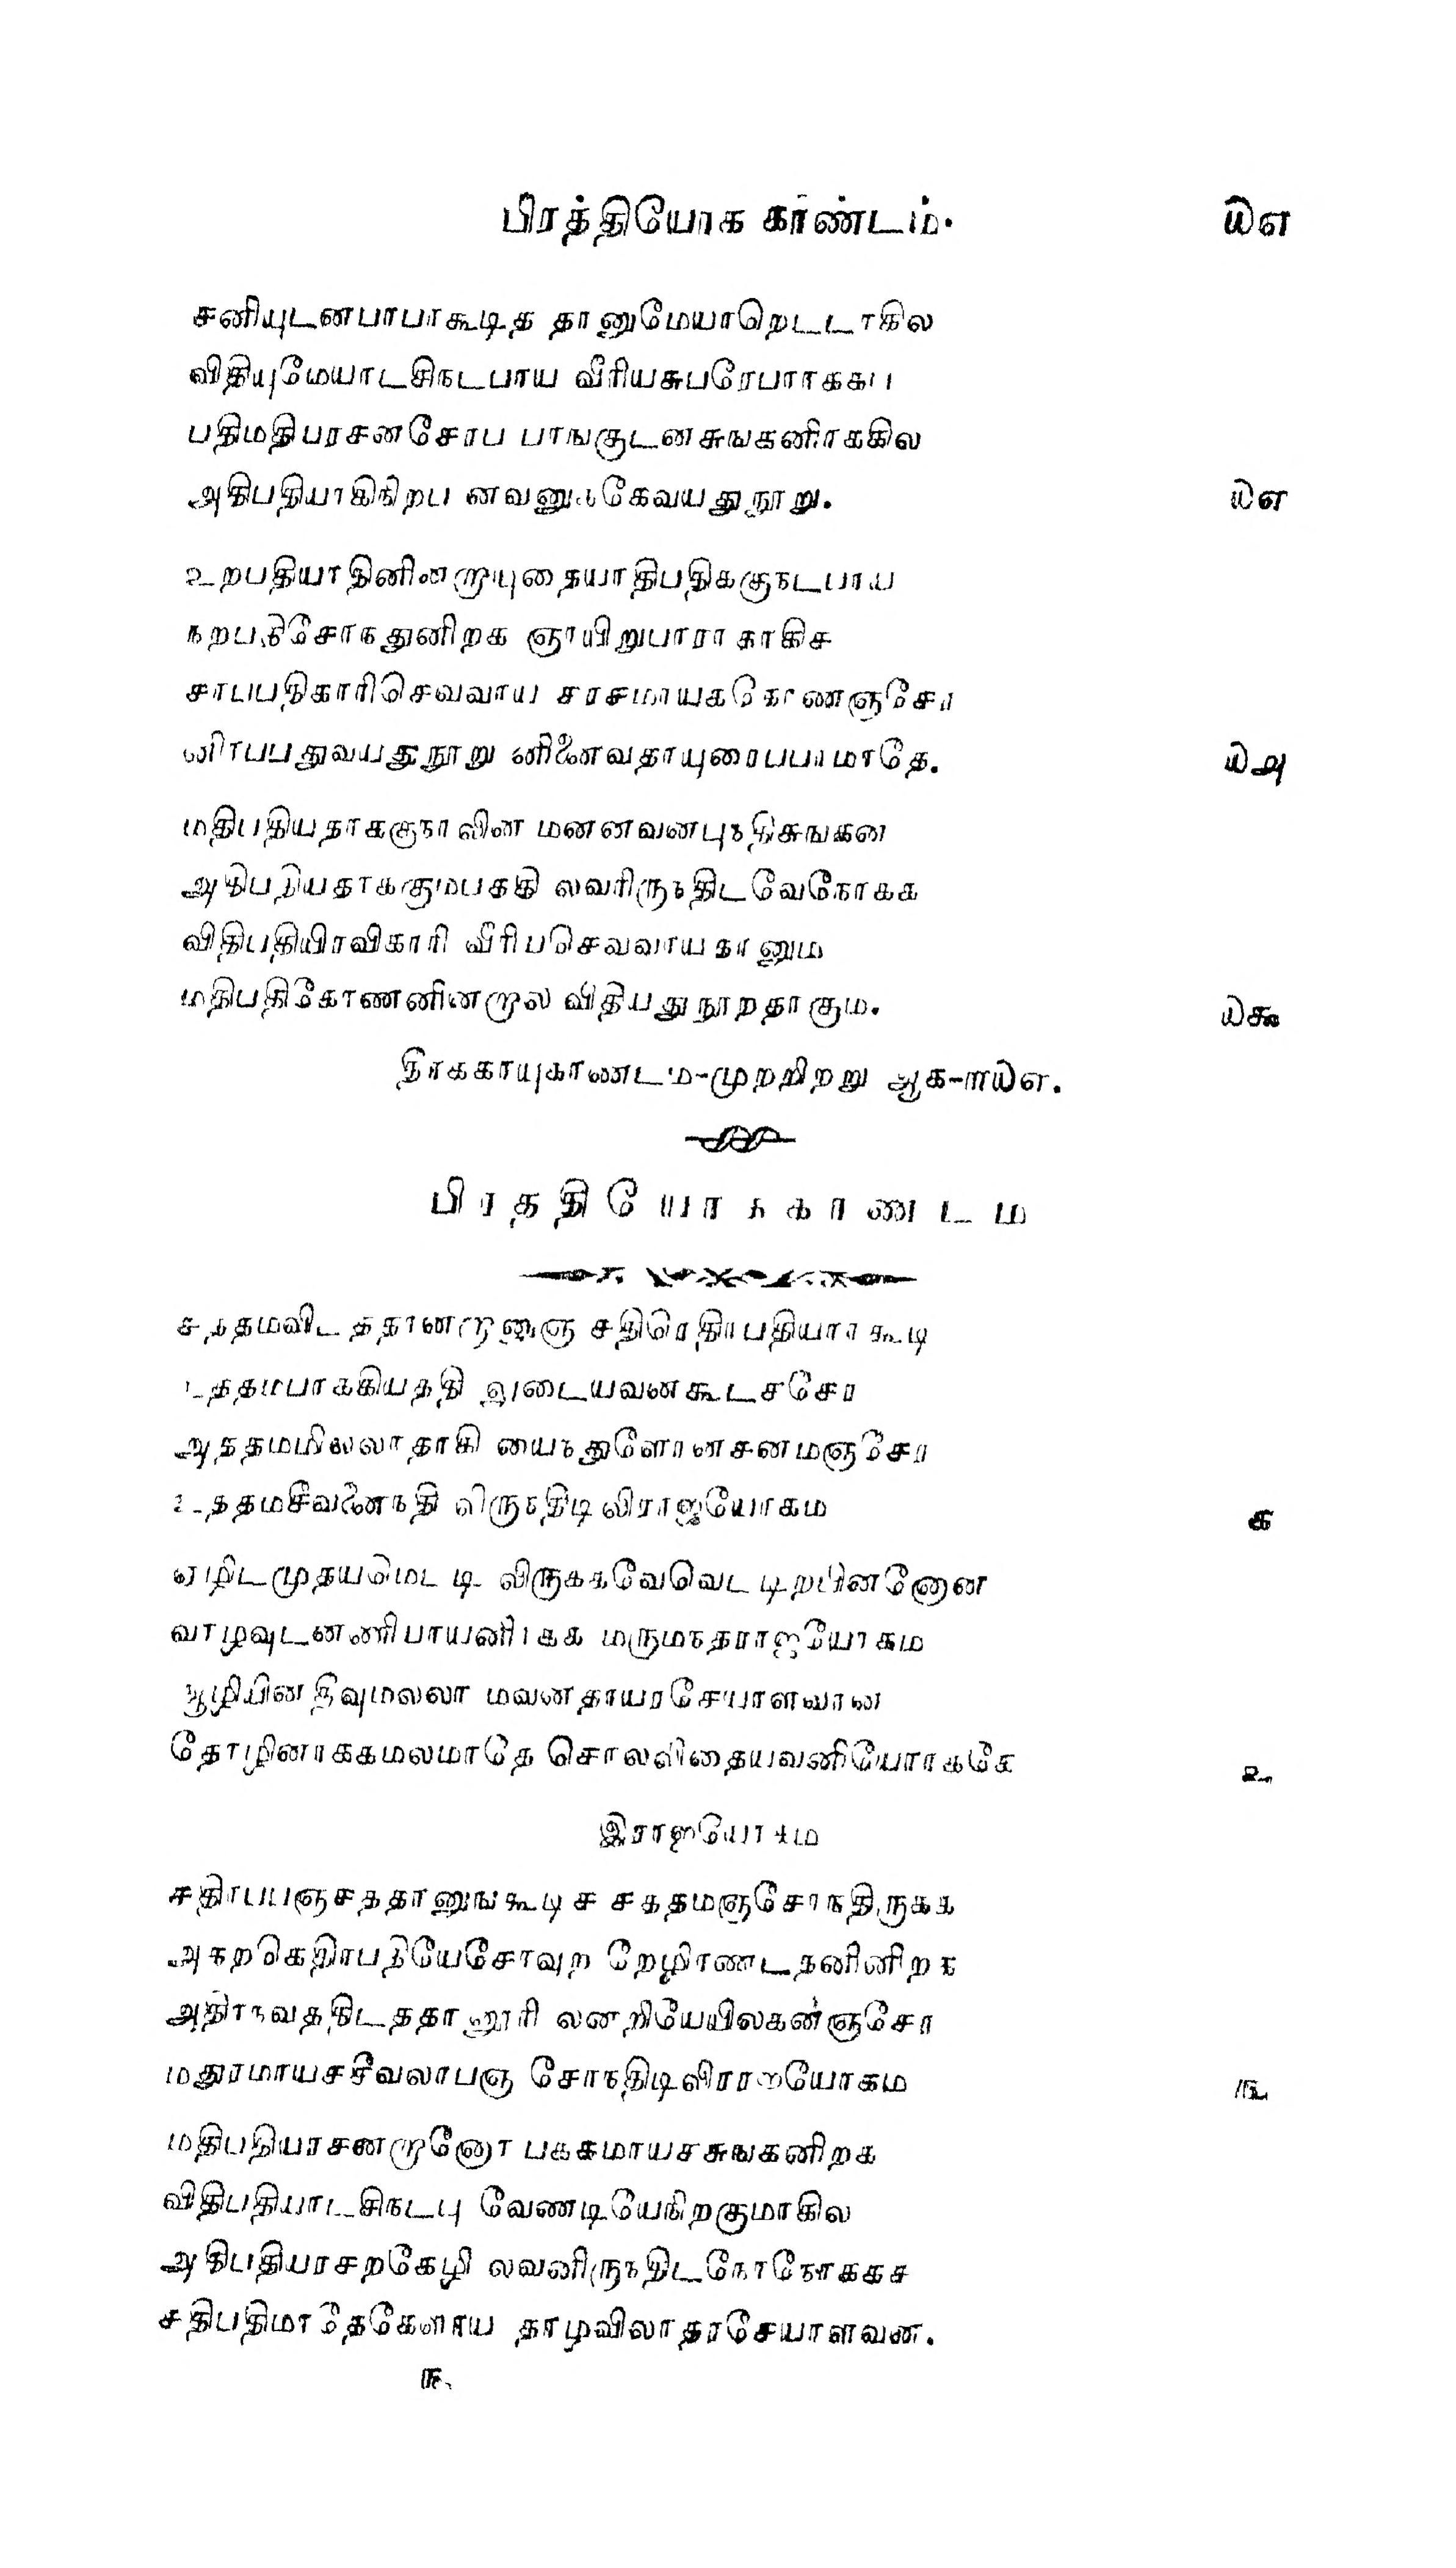 பிரத்தியோக காண்டம். ௰௭
சனியுடனபாபாகூடித தானுமேயாறெடடாகில
விதியுமேயாடசிநடபாய வீரியசுபரேபாாககப
பதிமதிபரசனசேரப பாஙகுடனசுஙகனிாககில
அதிபதியாகிநிறப னவனுககேவயதுநூறு. ௰௭
உறபதியாதினினறுயுதையாதிபதிககுநடபாய
நறபதிசோநதுனிறக ஞாயிறுபாரா தாகிச
சாபபதிகாரிசெவவாய சரசமாயககோணஞசேர
னிாபபதுவயதுநூறு னினைவதாயுரைபபாமாதே. ௰௮
மதிபதியதாககுநாலின மனனவனபுநதிசுஙகன
அதிபதியதாககுமபததி லவரிருநதிடவேநோகக
விதிபதியிரவிகாரி வீரிபசெவவாயதானும
மதிபதிகோணனினறால விதியதுநூறதாகும. ௰௯
தீாககாயுகாணடம-முறறிறறு ஆக-௱௰௭.
பிரததியோககாணடம
சததமவிடததானறானுஞ சதிரெதிாபதியாா கூடி
உததமபாககியததி லுடையவனகூடசசேர
அததமமிலலாதாகி யைநதுளோனசனமஞசேர
உததமசீவனைநதி லிருநதிடிலிராஜயோகம ௧
ஏழிடமுதயமெட டி லிருககவேவெட டிறபினனோன
வாழவுடனணிபாயனிாகக மருமநதராஜயோகம
ஆழியினதீவுமலலா மவனதாயரசேயாளவான
தோழினாககமலமாதே சொலலிதையவனியோாககே ௨
இராஜயோகம
சதிாபபஞசததானுஙகூடிச சததமஞசோநதிருகக
அநறகெதிாபதியேசோவுற றேழிாணடதனினிறக
அதிாநவததிடததானூரி லனறியேயிலகன்ஞசேர
மதுரமாயசசீவலாபஞ சோநதிடிலிராஜயோகம ௩
மதிபதியரசனறானோ பககமாயசசுஙகனிறக
விதிபதியாடசிநடபு வேணடியேநிறகுமாகில
அதிபதியரசறகேழி லவனிருநதிடநோநோககச
சதிபதிமாதேகேளாய தாழவிலாதரசேயாளவன.
௩